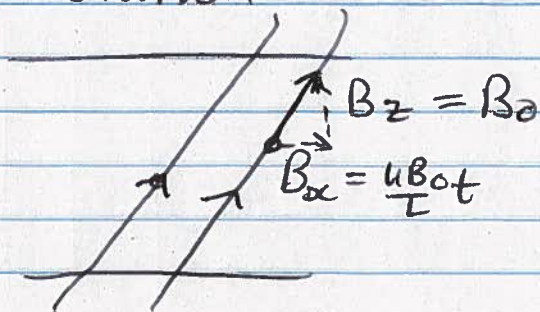 B_z = B_0
B_x = uB_0t/L